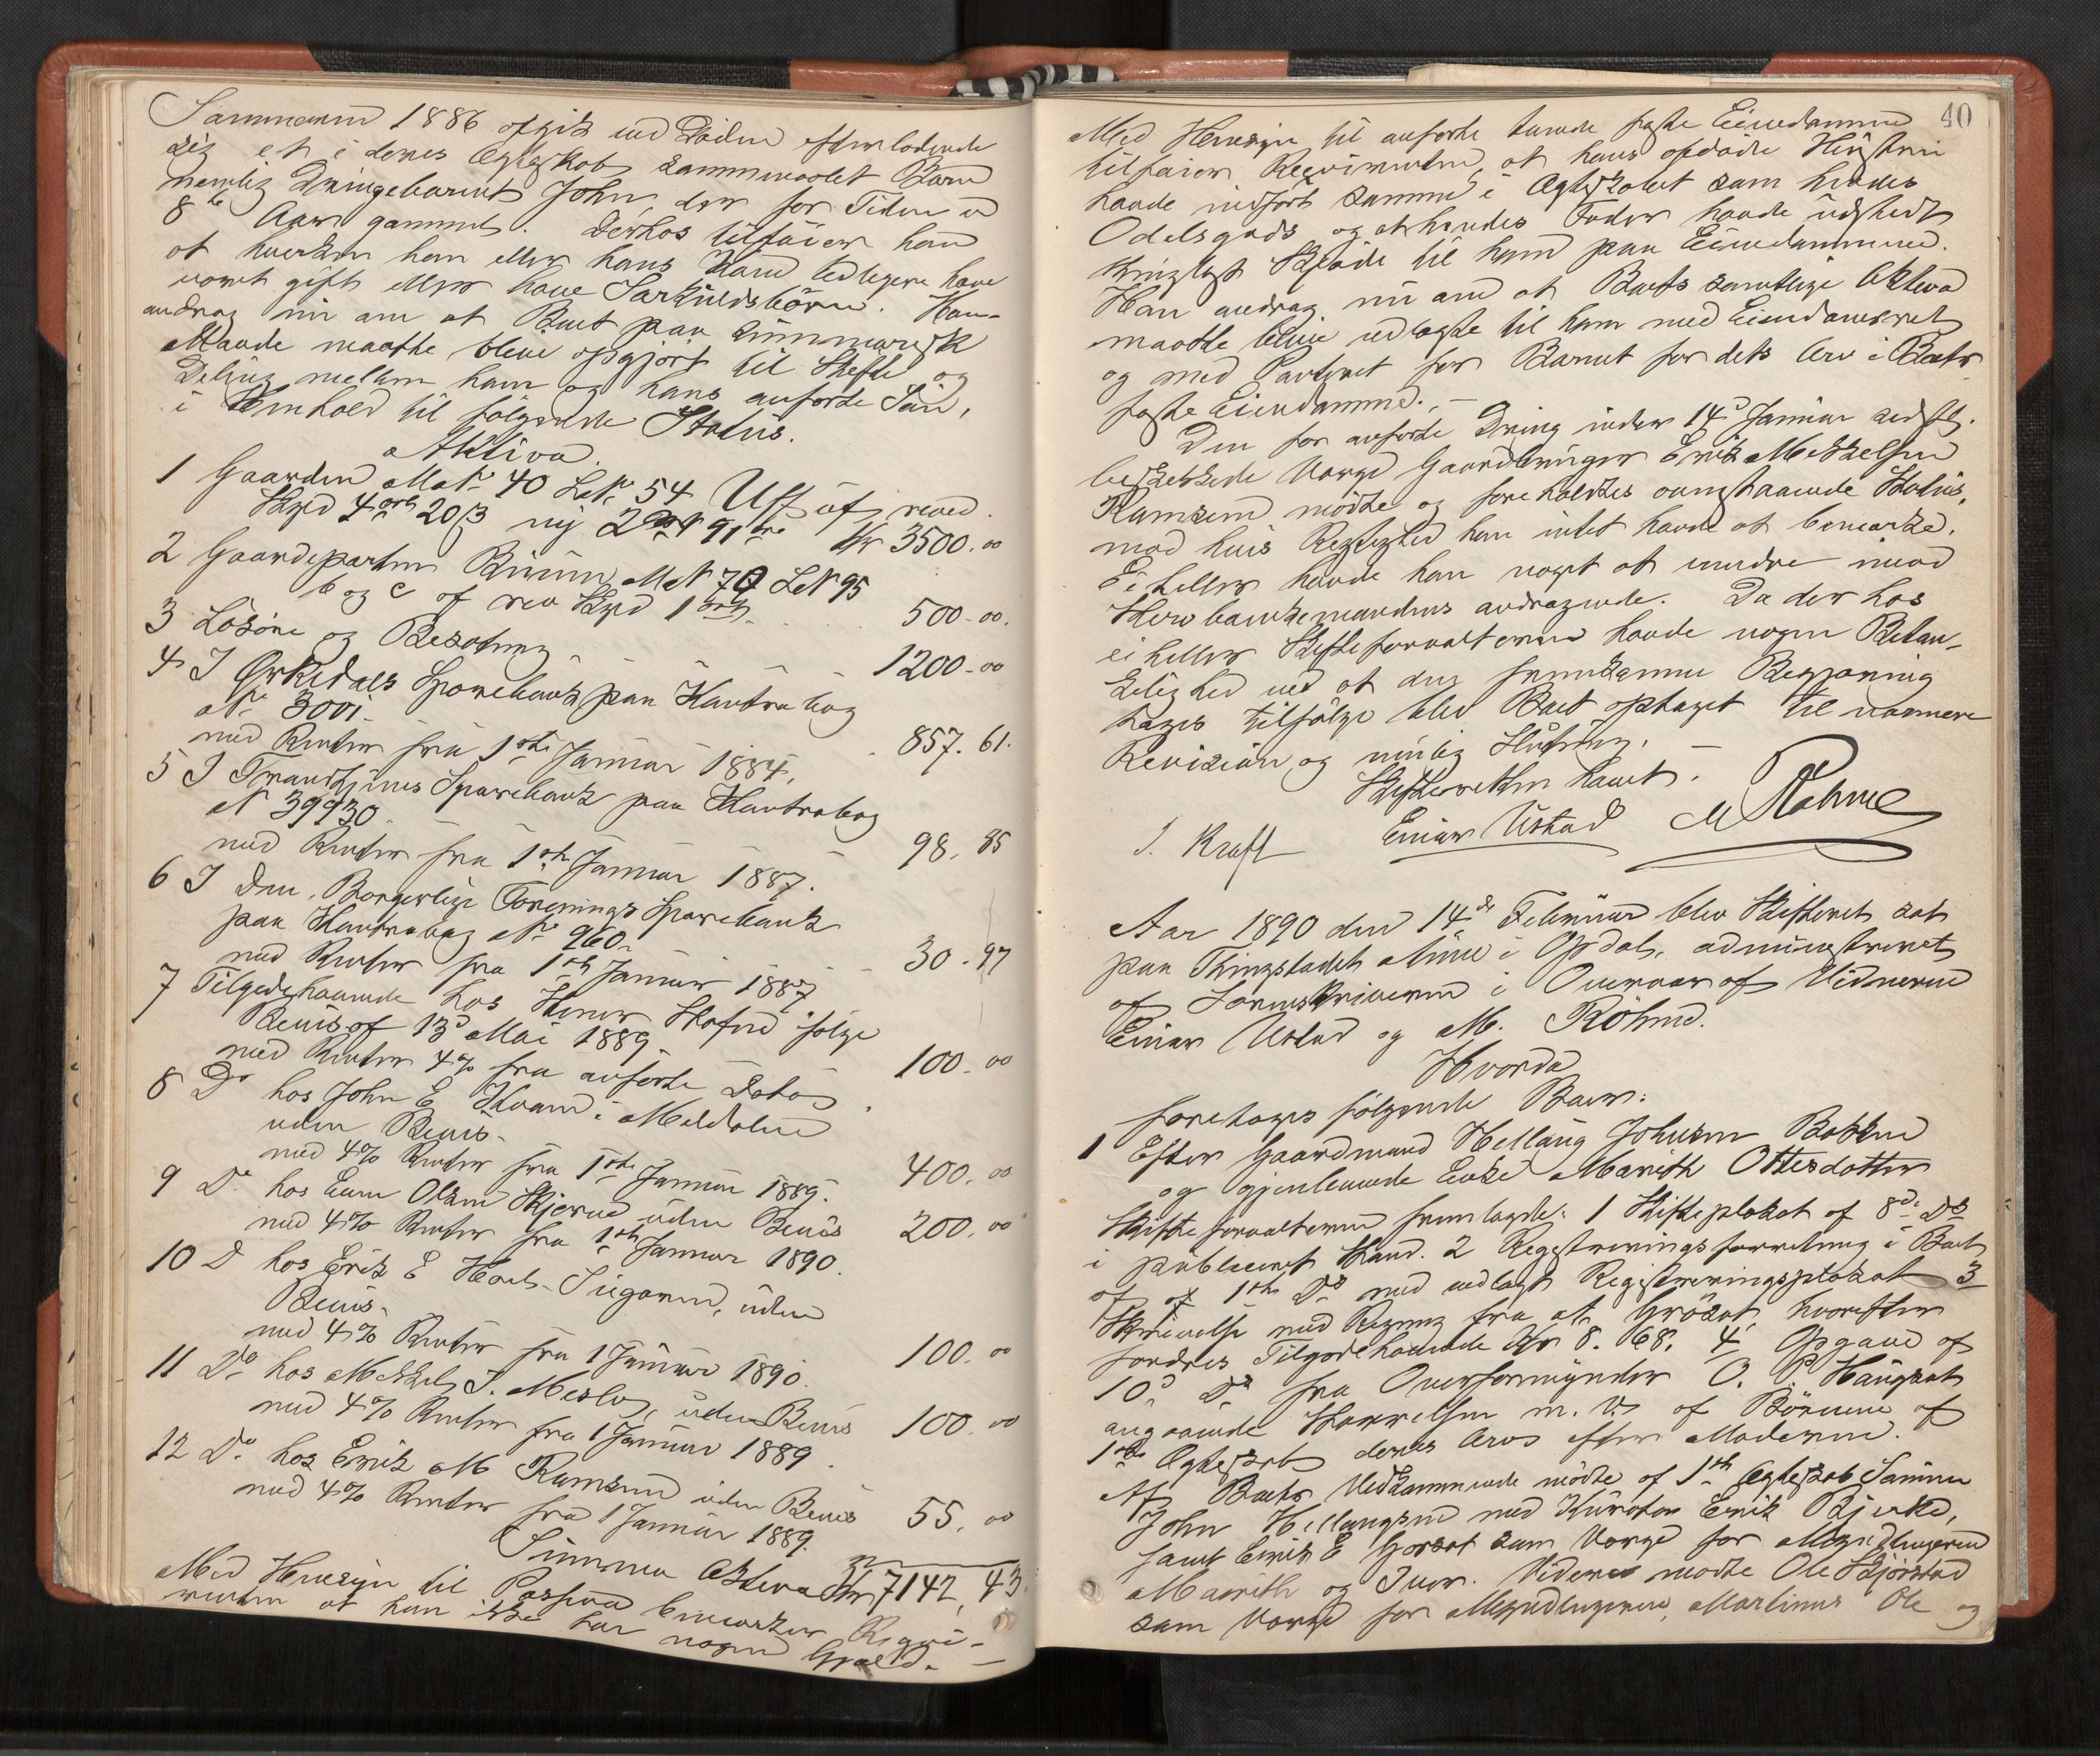 Sammerend 1886 afgik ved Døden efterladende
sig et i deres Ægteskab sammenavlet Barn
nemlig Drengebarnet John, der for Tiden er
8te Aar gammel. Derhos tilføier han
at hverken han eller hans Kone tidligere have
været gift eller have Særkuldsbörn. Han
androg nu om at Boet paa summarisk
Maade maatte blive opgjort til Skifte og
Deling mellem ham og hans anførte Søn,
i Henhold til følgende Status.
Aktiva.
1 Gaarden Mat No 40 L. No 54 Uf af reved.
Skyld 4 ort 20 ß ny 2 91 øre Kr 3500.00
2 Gaardeparten M N 70 L N 95
b og c af rev Skyld 1 ort 500-00.
3 Løsøre og Besætning 1200-00
4 I Ørkedals Sparebank paa Kontrabog
No 3001
med Renter fra 1ste Januar 1884. 857.61.
5 I Trondhjems Sparebank paa Kontrabog
N 39930
med Renter fra 1ste Januar 1887. 98.85
6 I den Borgerlige Forenings Sparebank
paa Kontrabog No 960
med Renter fra 1ste Januar 1887 30.97
7 Tilgodehavende hos Skofrd ifølge
Bevis af 13d Mai 1889
med Renter 4% fra anførte Dato 100.00
8 Do hos John E Hoem i Meldalen
uden Bevis.
med 4% Renter fra 1ste Januar 1889. 400.00
9 Do hos Even Olsen Skjerve uden Bevis
med 4% Renter fra 1ste Januar 1890. 200.00
10 D hos Erik E Hoel- uden
Bevis.
med 4% Renter fra 1 Januar 1890. 100.00
11 Do hos Mikkel J. Meslo, uden Bevis
med 4% Renter fra 1 Januar 1889. 100.00
12 Do hos Erik M Ramsem uden Bevis
med 4% Renter fra 1 Januar 1889. 55.00
Summa Aktiva Kr 7142,43.
Med Hensyn til Passiva bemærker Reqvi-
renten at han ikke har nogen Gjæld. —
40
Med Hensyn til anførte tvende faste Eiendomme
tilføier Reqvirenten, at hans afdøde Hustru
havde indført samme i Ægteskabet som hendes
Odelsgods og at hendes Fader havde udstedt
thinglyst Skjøde til ham paa Eiendommene.
Han androg nu om at Boets samtlige Aktiva
maatte blive udlagte til ham med Eiendomsret
og med Panteret for Barnet for dets Arv i Boets
faste Eiendomme. —
Den for anførte Dreng under 14d Januar sidstl.
beskikkede Værge Gaardbruger Erik Mikkelsen
Ramsem mødte og foreholdtes ovenstaaende Status,
mod hvis Rigtighed han intet havde at bemærke.
Ei heller havde han noget at erindre imod
Herr Enkemandens andragende. Da der hos
ei heller Skifteforvalteren havde nogen Betæn-
kelighed ved at den fremkomne Begjæring
toges tilfølge blev Boet optaget til nærmere
Revision og mulig Slutning. —
Skifteretten hævet.
J. Kraft Einar Ustad M Röhme
Aar 1890 den 14de Februar blev Skifteret sat
paa Thingstedet Aune i Opdal, administreret
af Sorenskriveren i Overvær af Vidnerne
Einar Ustad og M. Röhme.
Hvorda
foretoges følgende Boer:
1 Efter Gaardmand Hellaug Johnsen Bakken
og gjenlevende Enke Marith Ottesdotter
Skifteforvalteren fremlagde: 1 Skifteplakat af 8d. Ds
i publiceret Stand. 2 Registreringsforretning i Boet
af af 1ste Ds med vedlagt Registreringsplakat 3
Skrivelse med Regning fra M. Grøsat, hvorefter
fordres Tilgodehavende Kr 8.68. 4 Opgave af
10d Ds fra Overformynder O. P. Haugset
angaaende Størrelsen m. V. af Børnene af
1ste Ægteskab deres Arv efter Moderen.
Paa Boets Vedkommende mødte af 1ste Ægteskab Sønnen
John Hellaugsen med Kurator Erik Bjerke,
samt Erik E Gorsat som Værge for Myndlingerne
Marith og Iver. Videre mødte Ole Skjøstad
som Værge for Myndlingerne, Martinus Ole og